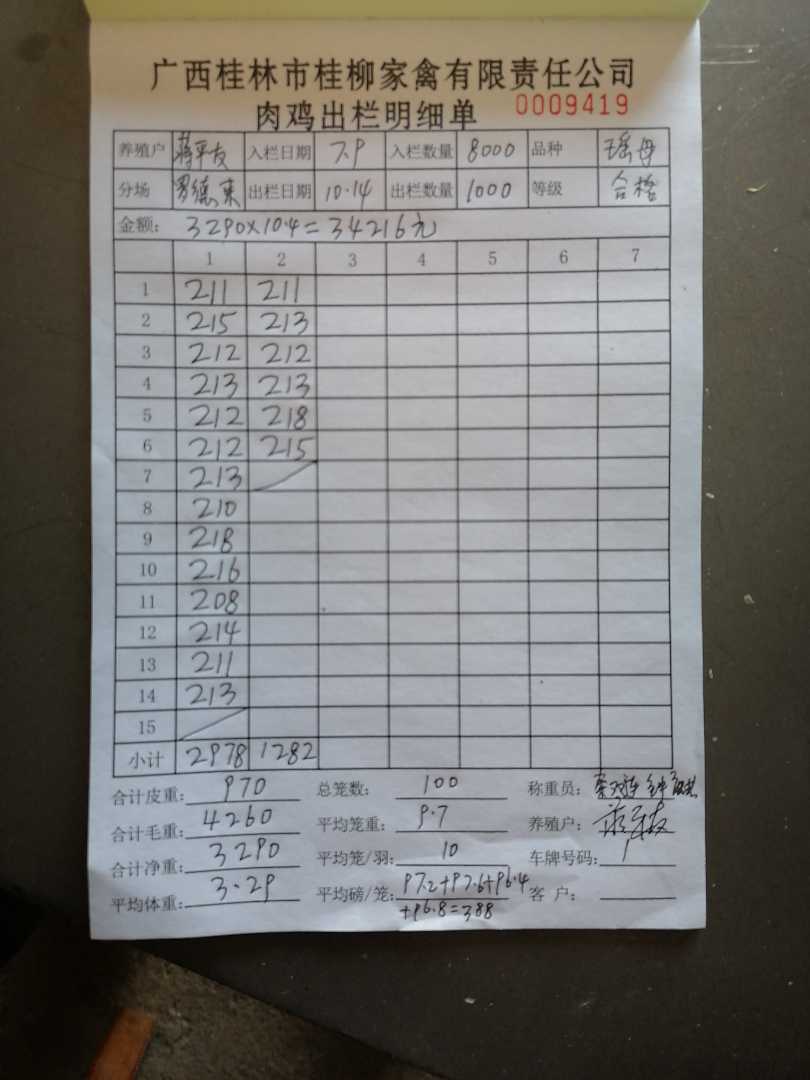 广西桂林市桂柳家禽有限责任公司
肉鸡出栏明细单 0009419
养殖户 蒋平友 入栏日期 7.9 入栏数量 8000 品种 瑶母
分场 罗德来 出栏日期 10.14 出栏数量 1000 等级 合格
金额: 3290×10.4=34216元
1 2 3 4 5 6 7
1 211 211
2 215 213
3 212 212
4 213 213
5 212 218
6 212 215
7 213
8 210
9 218
10 216
11 208
12 214
13 211
14 213
15
小计 2978 1282
合计皮重: 970 总笼数: 100 称重员:
合计毛重: 4260 平均笼重: 9.7 养殖户:
合计净重: 3290 平均笼/羽: 10 车牌号码:
平均体重: 3.29 平均磅/笼: 97.2+97.6+96.4 客 户:
+96.8=388